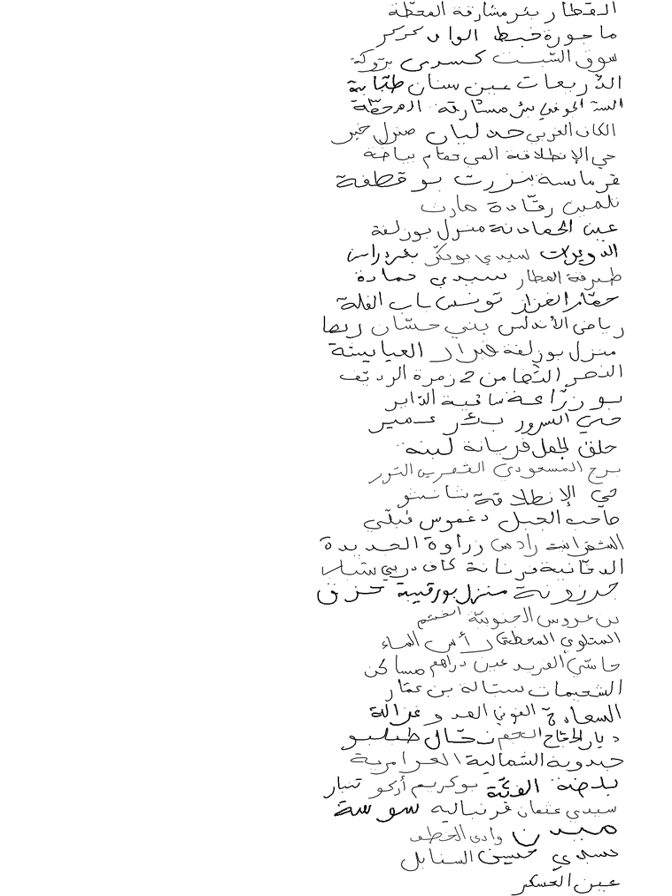 القطار بئر مشارقة المحطة
ماجورة خبط الواد كركر
سوق السبت كسرى بروكة
الذريعات عين سنان طبّابية
بئر مشارقة المرحمة
الكاف الغربي حدليان منزل خير
حي الإنطلاقة المي مقام بياضة
قرماسة بنزرت بوقطفة
تلمين رقّادة هارت
عين الحمادنة منزل بوزلفة
الدويرات سيدي بوبكر بئر دراسن
طبرقة العطار سيدي حمادة
حفّار الفزاز تونس باب الفلة
رياض الأندلس بني حسّان ريما
منزل بوزلفة العيايشة
النصر الثامن 2 زمرة الرديف
بوزرّاعة ساقية الداير
حي السرور بئر عمير
حلق الجمل فريانة لبنة
برج المسعودي القصرين النور
حي الإنطلاقة شانشو
صاحب الجبل دغموس قبلّي
رادس زراوة الجديدة
الدخّانية فرنانة كاف دربي شبار
جرزونة منزل بورقيبة حزق
بن عروس الجنوبية
المتلوي المحطة رأس الماء
حاسي الفريد عين دراهم مساكن
الشعيمات ستالة بن عمّار
السعادة العوني غزالة
ديار الحجاج النجم زحال طبلبو
جيدوبة الشمالية العوامرية
بلضة الفكّة بوكريم أركو تيبار
سيدي عثمان قرنبالية سوسة
ميدن وادي الخطف
سيدي حسين السنابل
عين العسكر